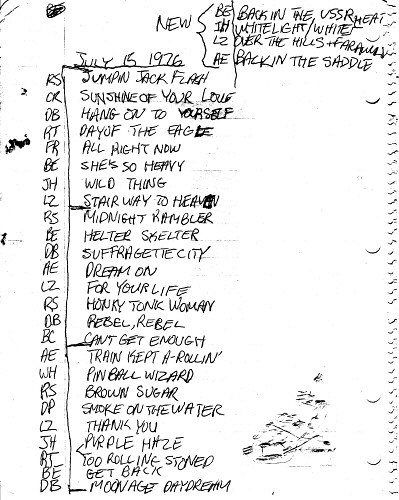 BE BACK IN THE USSR
NEW JH WHITELIGHT/WHITE HEAT
LZ OVER THE HILLS + FARAWAY
AE BACK IN THE SADDLE
JULY 15 1976
RS JUMPIN JACK FLASH
CR SUNSHINE OF YOUR LOVE
DB HANG ON TO YOURSELF
RT DAY OF THE EAGLE
FR ALL RIGHT NOW
BE SHE'S SO HEAVY
JH WILD THING
LZ STAIRWAY TO HEAVEN
RS MIDNIGHT RAMBLER
BE HELTER SKELTER
DB SUFFRAGETTE CITY
AE DREAM ON
LZ FOR YOUR LIFE
RS HONKY TONK WOMAN
DB REBEL, REBEL
BC CAN'T GET ENOUGH
AE TRAIN KEPT A-ROLLIN'
WH PINBALL WIZARD
RS BROWN SUGAR
DP SMOKE ON THE WATER
LZ THANK YOU
JH PURPLE HAZE
RT TOO ROLLING STONED
BE GET BACK
DB MOONAGE DAYDREAM